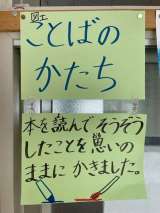 図工
ことばの
かたち
本を読んでそうぞう
したことを思いの
ままに かきました。